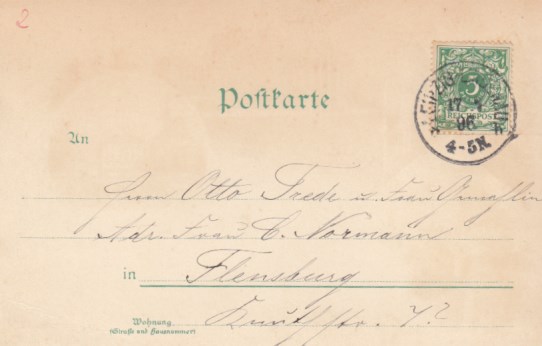 2
LEIPZIG
17 1
96
4-5N.
5
REICHSPOST
Postkarte
An
Herrn Otto Trede u. Frau Gemahlin
Adr. Frau C. Normann
in Flensburg
Wohnung
(Straße und Hausnummer)
str. 4?